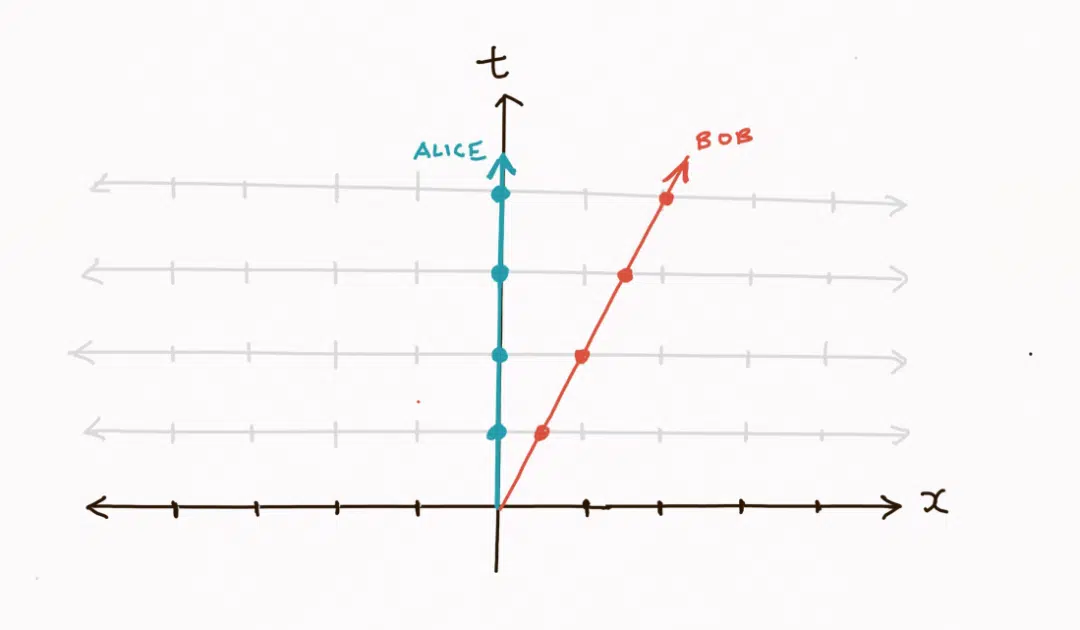 t
ALICE
BOB
x